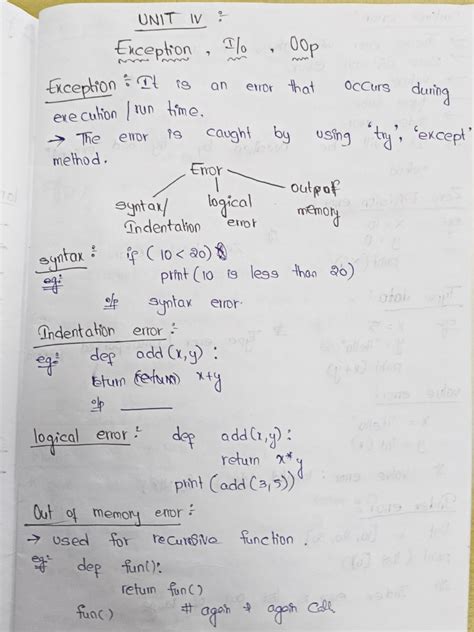 UNIT IV :
Exception , I/o , OOp
Exception : It is an error that occurs during
execution / run time.
→ The error is caught by using 'try', 'except'
method.
Error
syntax/ Indentation
logical error
out of memory
syntax :
if (10 < 20)
eg:
print (10 is less than 20)
o/p syntax error.
Indentation error :
eg: def add(x,y) :
return (return) x+y
o/p
logical error : def add(x,y) :
return x*y
print (add (3,5))
Out of memory error :
→ used for recursive function.
eg: def fun() :
return fun()
fun() # again & again call